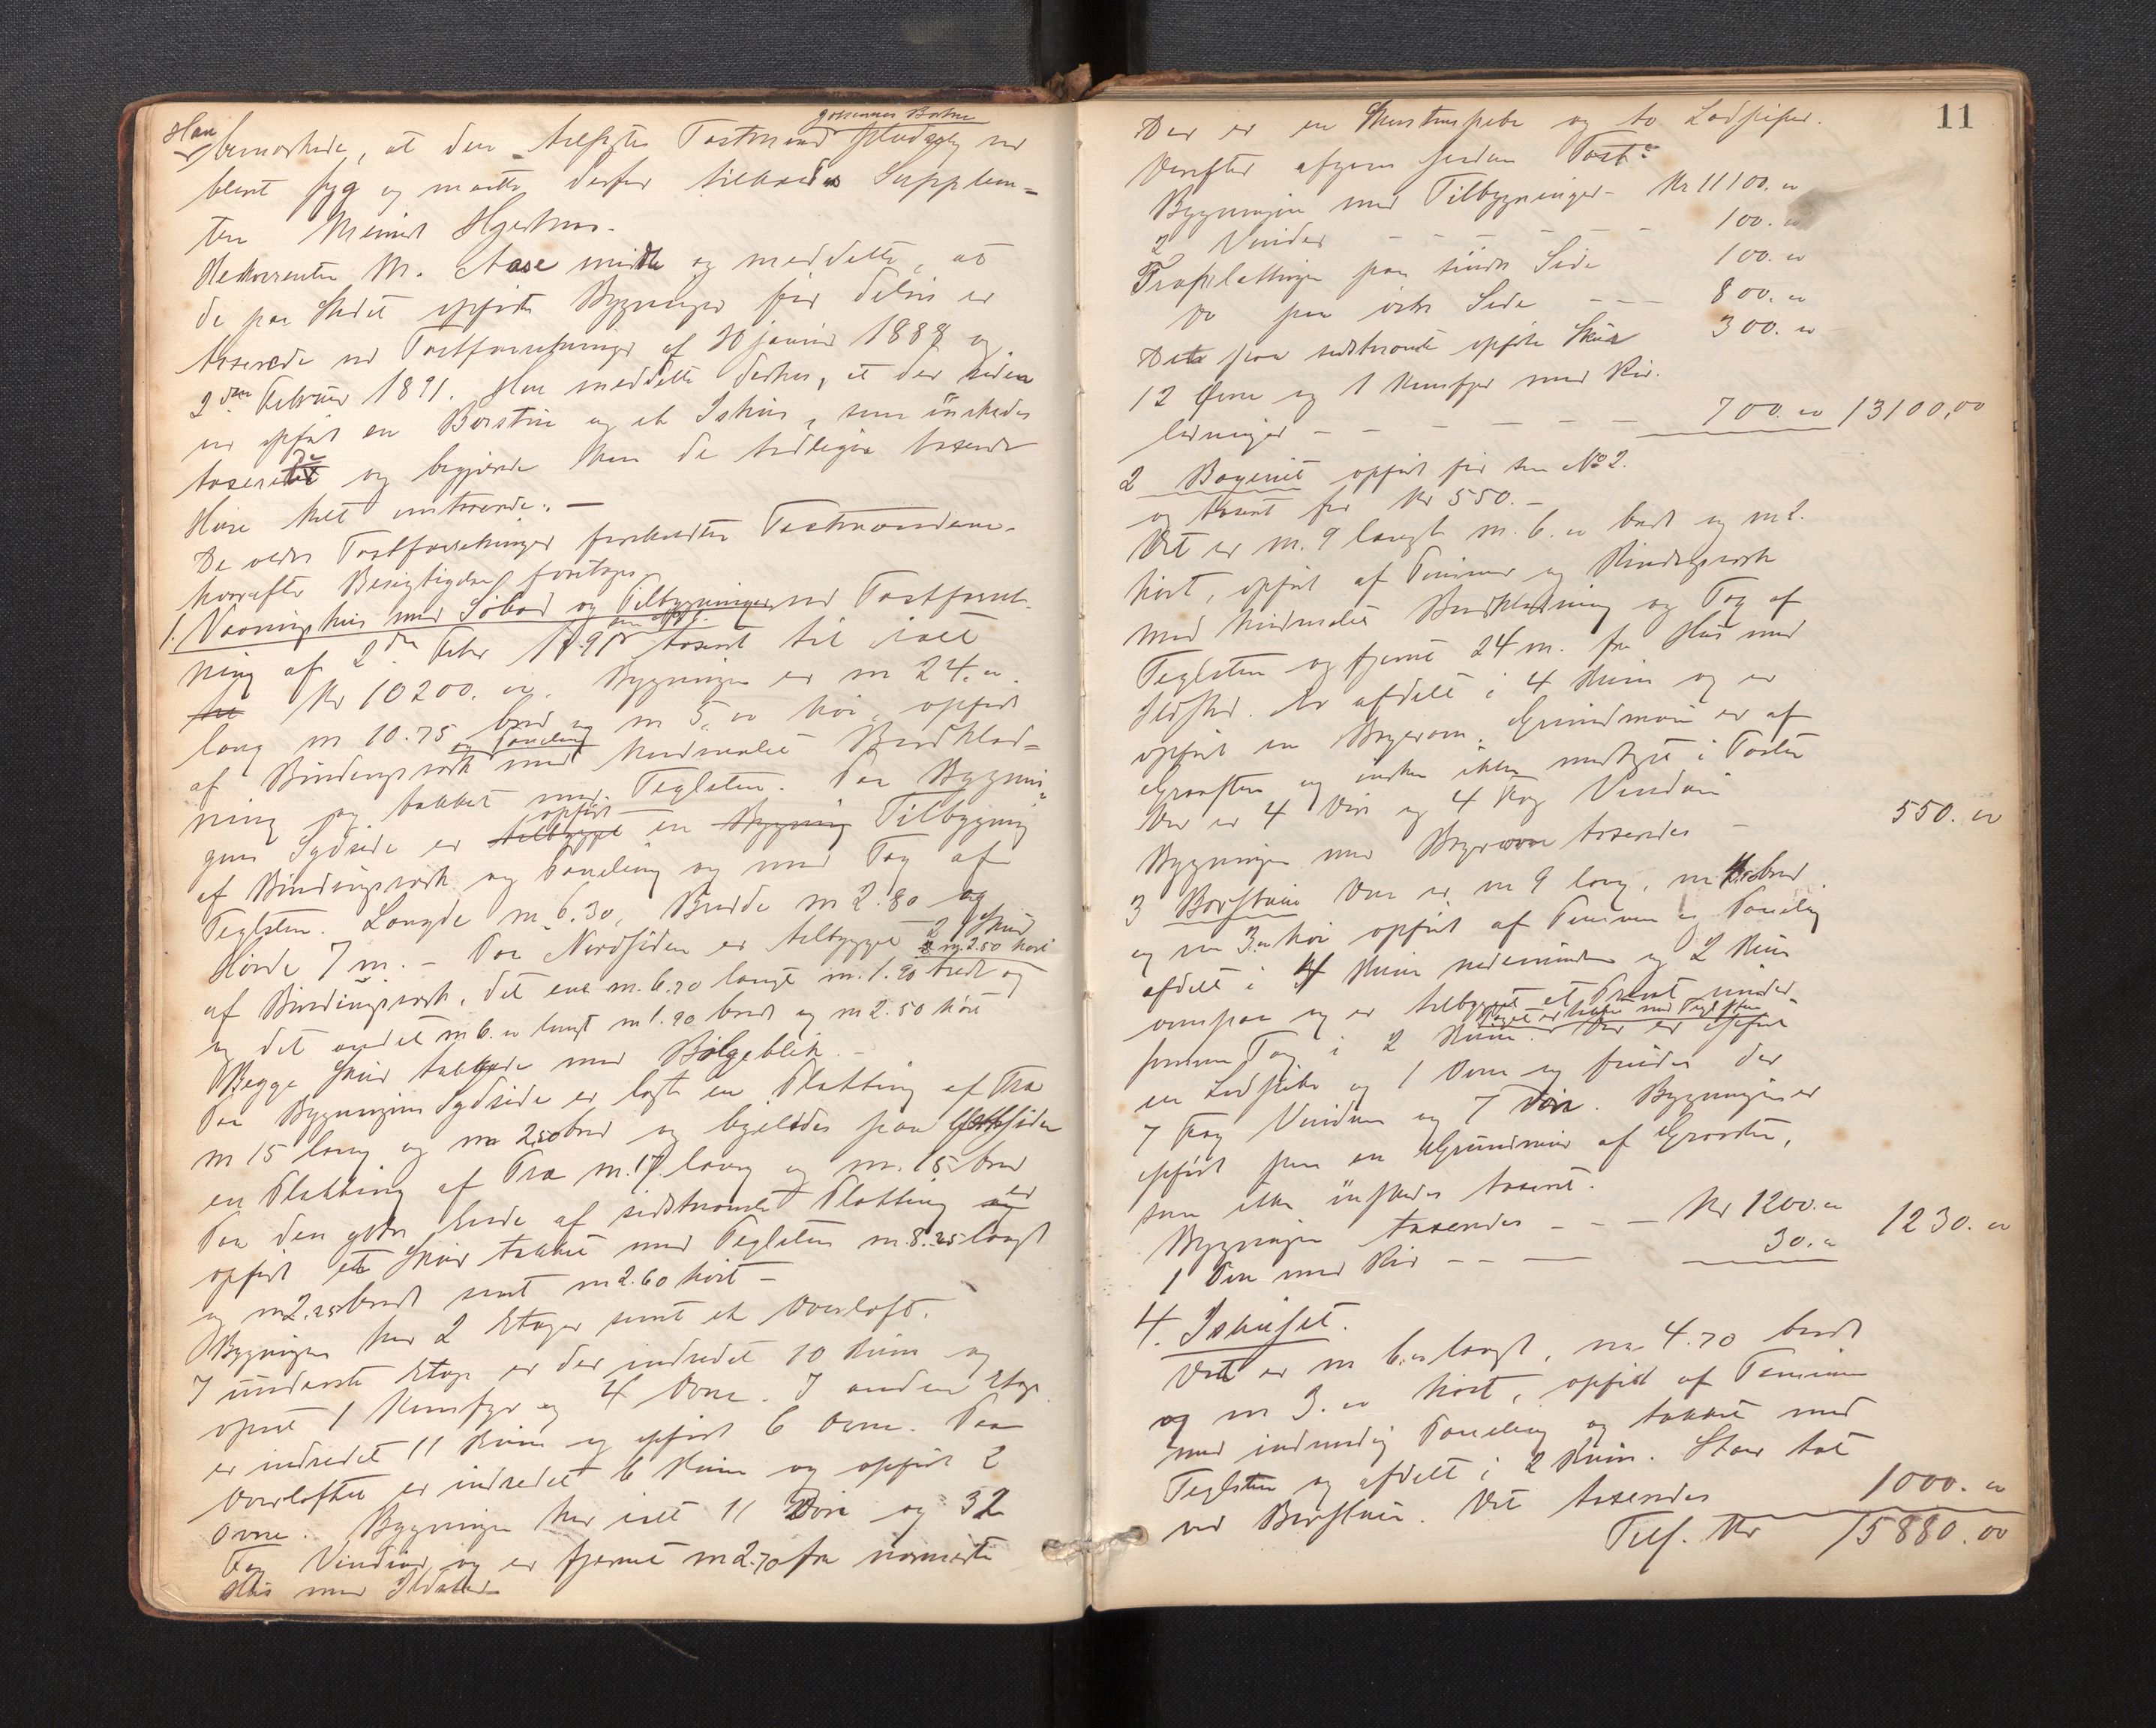 Han bemærkede, at den tilsagte Taxtmand Johannes pludselig var
blevet syg og maatte derfor tilkaldes Supplean-
ten
Rekvirenten M. Aase mødte og meddelte, at
de paa Stedet opførte Bygninger før delvis er
taxerede ved Taxtforretninger af 20 januar 1888 og
2den Februar 1891. Han meddelte derhos, at der siden
er opført en Borstue og et Ishus, som ønskedes
taxerede og begjærede han de tidligere taxerede
Huse helt omtaxerede. –
De ældre Taxtforretninger foreholdtes Taxtmændene
hvorefter Besigtigelse foretages.
1. Vaaningshus med Søbod og Tilbygninger ved Taxtforret-
ning af 2den Febr 1891 taxeret til ialt
Kr 10200.00. Bygningen er m 24.00
lang m 10.75 bred og m 5.00 høi, opført
af Bindingsværk og Paneling med hvidmalet Bordklæd-
ning og tækket med Teglsten. Paa Bygnin-
gens Sydside er opført en Tilbygning
af Bindingsværk og Paneling og med Tag af
Teglsten. Længde m 6.30, Bredde m 2.80 og
Høide 7 m. – Paa Nordsiden er tilbygget 2 Skur
af Bindingsværk, det ene m. 6.70 langt m. 1.90 bredt og m 2.50 høit
og det andet m 6.00 langt m 1.90 bredt og m 2.50 høit
Begge Skur tækkede med Bølgeblik. –
Paa Bygningens Sydside er lagt en Platting af Træ
m 15 lang og m 2.50 bred og ligeledes paa
en Platting af Træ m. 17 lang og m. 15 bred
Paa den ydre Ende af sidstnævnte Platting er
opført et Skur tækket med Teglsten m. 8.25 langt
og m 2.25 bredt samt m 2.60 høit –
Bygningen har 2 Etager samt et Overloft.
I underste Etage er der indredet 10 Rum og
opsat 1 Komfyr og 4 Ovne. I anden Etage
er indredet 11 Rum og opført 6 Ovne. Paa
Overloftet er indredet 6 Rum og opført 2
Ovne. Bygningen har ialt 11 Døre og 32
Fag Vinduer, og er fjernet m 2.70 fra nærmeste
Hus med Ildsted –
11
Der er en Skorstenspibe og to Lodpiper.
Derefter afgives saadan Taxt:
Bygningen med Tilbygninger – Kr 11100.00
2 Vinder – – – – – – 100.00
Træplattingen paa søndre Side 100.00
Do paa østre Side – – – 800.00
Det paa sidstnævnte opførte Skur 300.00
12 Ovne og 1 Komfyr med Rør-
ledninger – – – – – – 700.00 13100.00
2 Bageriet opført før som No 2.
og taxeret for Kr 550. –
Det er m. 9 langt m. 6.00 bredt og m 2.
høit, opført af Tømmer og Bindingsværk
med hvidmalet Bordklædning og Tag af
Teglsten og fjernet 24 m. fra Hus med
Ildsted. Er afdelt i 4 Rum og er
opført en Bagerovn. Grundmuren er af
Graasten og ønskes ikke medtaget i Taxten
Der er 4 Døre og 4 Fag Vinduer
Bygningen med Bagerovn taxeredes – 550.00
3 Borstuen Den er m 9 lang, m bred
og m 3.00 høi opført af Tømmer og Paneling
afdelt i 4 Rum nedenunder og 2 Rum
ovenpaa og er tilbygget et Travt under
samme Tag i 2 Rum. Taget er tækket med Teglsten Der er opført
en Lodpibe og 1 Ovn og findes der
7 Fag Vinduer og 7 Døre. Bygningen er
opført paa en Grundmur af Graasten,
som ikke ønskedes taxeret.
Bygningen taxeredes – – – Kr 1200.00
1 Ovn med Rør – – – 30.00 1230.00
4. Ishuset.
Det er m 6.00 langt, m 4.70 bredt
og m 3.00 høit, opført af Tømmer
med indvendig Paneling og tækket med
Teglsten og afdelt i 2 Rum. Staar tæt
ved Borstuen. Det taxeredes 1000.00
Tils. Kr 15880.00